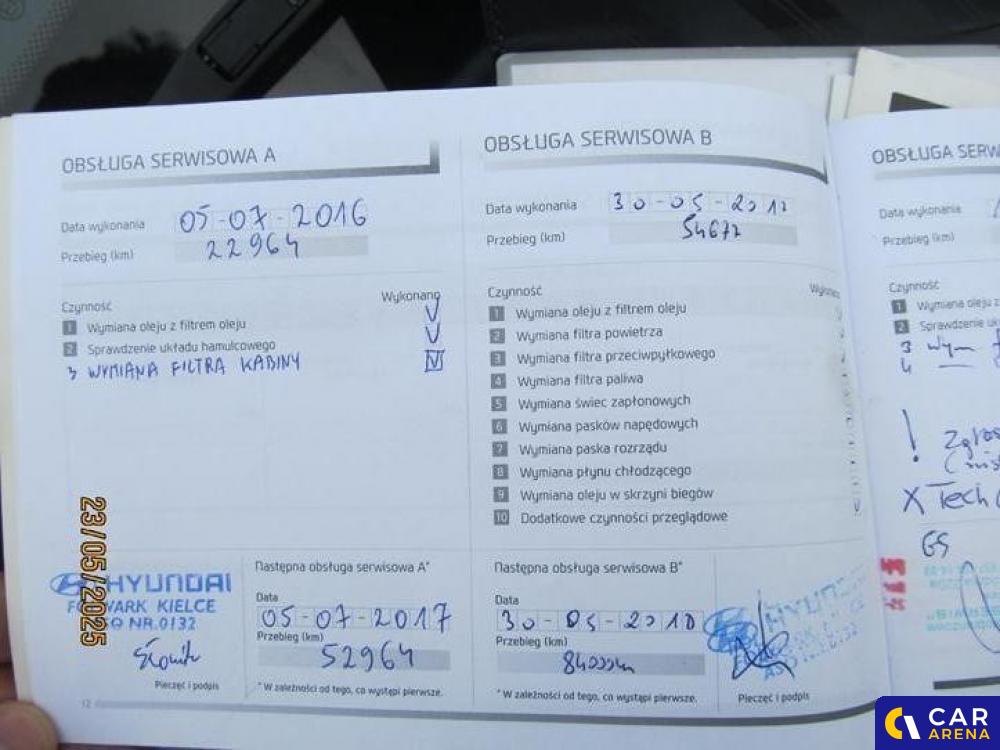 OBSŁUGA SERWISOWA A
Data wykonania 05-07-2016
Przebieg (km) 22964
Czynność Wykonano
1 Wymiana oleju z filtrem oleju V
2 Sprawdzenie układu hamulcowego V
3 WYMIANA FILTRA KABINY V
HYUNDAI
KIELCE
NR.0132
Pieczęć i podpis
Następna obsługa serwisowa A*
Data
05-07-2017
Przebieg (km)
52964
* W zależności od tego, co wystąpi pierwsze.
12
23/05/2025
OBSŁUGA SERWISOWA B
Data wykonania 30-05-2017
Przebieg (km) 54677
Czynność
1 Wymiana oleju z filtrem oleju
2 Wymiana filtra powietrza
3 Wymiana filtra przeciwpyłkowego
4 Wymiana filtra paliwa
5 Wymiana świec zapłonowych
6 Wymiana pasków napędowych
7 Wymiana paska rozrządu
8 Wymiana płynu chłodzącego
9 Wymiana oleju w skrzyni biegów
10 Dodatkowe czynności przeglądowe
Następna obsługa serwisowa B*
Data
30-05-2018
Przebieg (km)
* W zależności od tego, co wystąpi pierwsze.
Pieczęć i podpis
OBSŁUGA SERW
Data wykonania
Przebieg (km)
Czynność
1 Wymiana oleju z
2 Sprawdzenie uk
3 Wym
4
!
X Tech
GS
CAR
ARENA